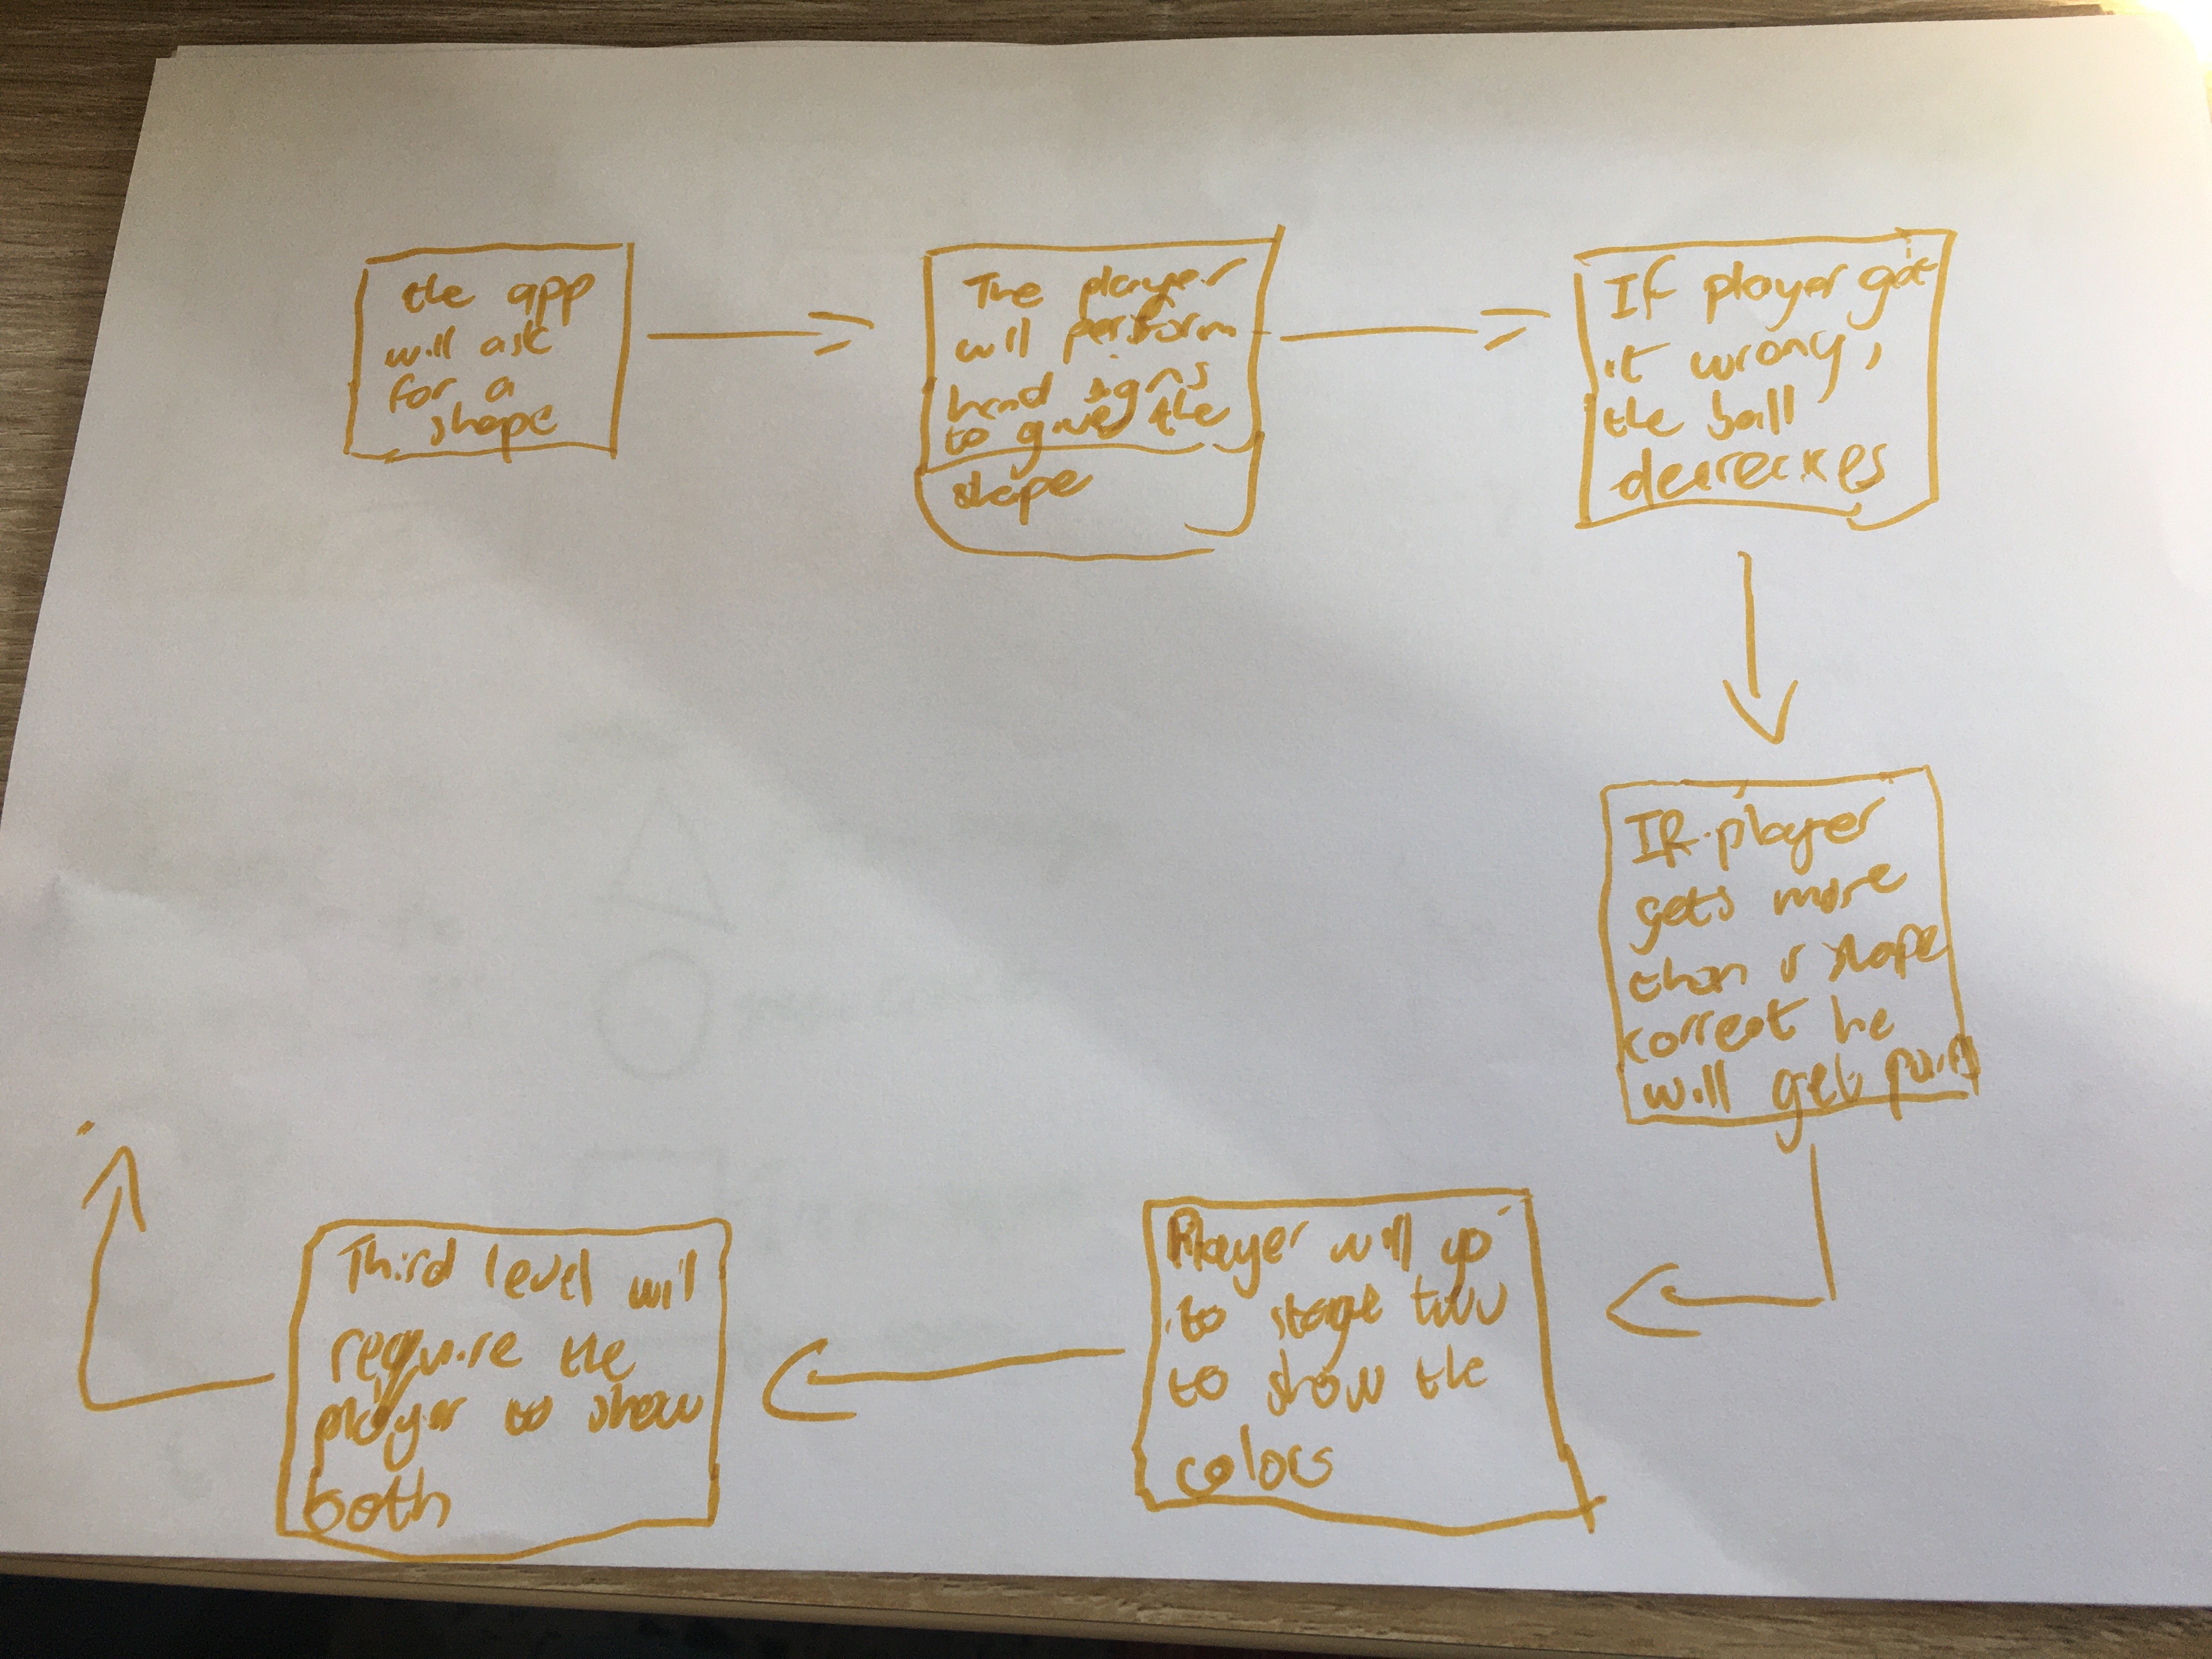 the app
will ask
for a
shape
The player
will perform
hand sign
to guess the
shape
If player got
it wrong,
the ball
If player
gets more
than 1 shape
correct he
will get
Player will up
to stage two
to show the
colors
Third level will
require the
player to show
both